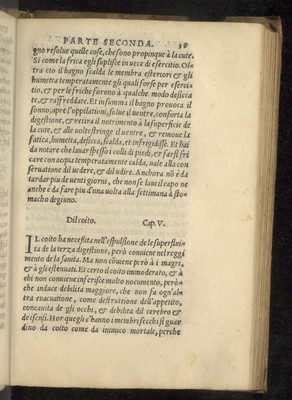 PARTE SECONDA. 38
gno resolue quelle cose, che sono propinque à la cute.
Si come la frica egli suplisce in uece di esercitio. Ol-
tra cio il bagno scalda le membra esteriori & gli
humetta temperatamente gli quali forse per eserci-
tio, & per le friche furono à qualche modo desicca
te, & raffreddate. Et in summa il bagno prouoca il
sonno, apre l'oppilationi, solue il uentre, conforta la
digestione, & retira il nutrimento à la superficie de
la cute, & alle uolte stringe il uentre, & remoue la
fatica, humetta, desicca, scalda, et infrigidisce. Et hai
da notare che lauar spesso i colli di piedi, & farsi fri
care con acqua temperatamente calda, uale alla con
seruatione dil uedere, & dil udire. Anchora nõ è da
tardar piu de uenti giorni, che non se laui il capo ne
anche è da fare piu d'una uolta alla settimana à sto-
macho degiuno.
Dil coito. Cap. V.
IL coito ha necessita nell'espulsione de le superflui-
ta de la terza digestione, però conuiene nel reggi
mento de la sanita. Ma non cõuiene però à i magri,
& à gli estenuati. Et certo il coito immoderato, & à
chi non conuiene inferisce molto nocumento, perõ-
che induce debilita maggiore, che non fa ogn'al-
tra euacuatione, come destruttione dell'appetito,
concauita de gli occhi, & debilita dil cerebro &
de i sensi. Hor quegli c'hanno i membri secchi si guar
dino da coito come da inimico mortale, perche